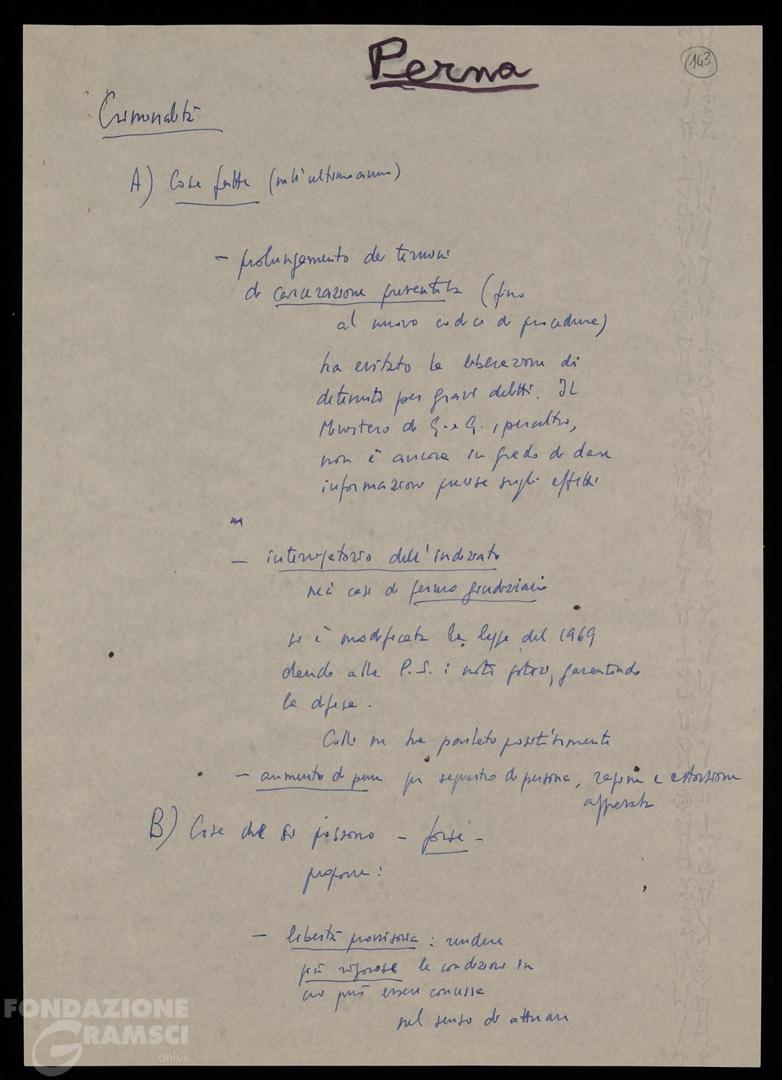 Perna
143
Criminalità
A) Cose fatte (nell'ultimo anno)
– prolungamento dei termini
di carcerazione preventiva (fino
al nuovo codice di procedura)
ha evitato la liberazione di
detenuti per gravi delitti. Il
Ministero di G. e G., peraltro,
non è ancora in grado di dare
informazioni precise sugli effetti
– interrogatorio dell'indiziato
nei casi di fermo giudiziario
si è modificata la legge del 1969
dando alla P.S. i noti poteri, garantendo
la difesa.
me ha parlato positivamente
– aumento di pene per sequestro di persona, rapina e estorsione
aggravata
B) Cose che si possono – forse –
proporre:
– libertà provvisoria: rendere
più rigorose le condizioni in
cui può essere concessa
nel senso di attuare
FONDAZIONE
GRAMSCI
onlus